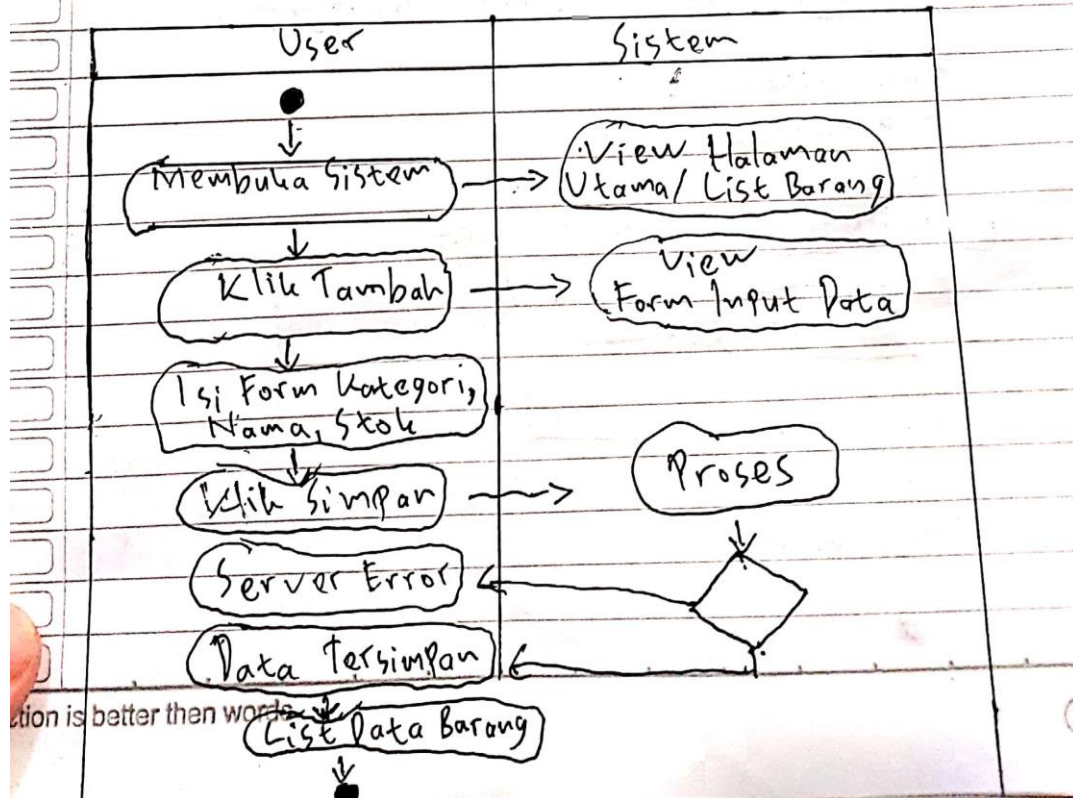 User
Sistem
Membuka Sistem
View Halaman
Utama/ List Barang
Klik Tambah
View
Form Input Data
Isi Form Kategori,
Nama, Stok
Klik Simpan
Proses
Server Error
Data Tersimpan
tion is better then words
List Data Barang